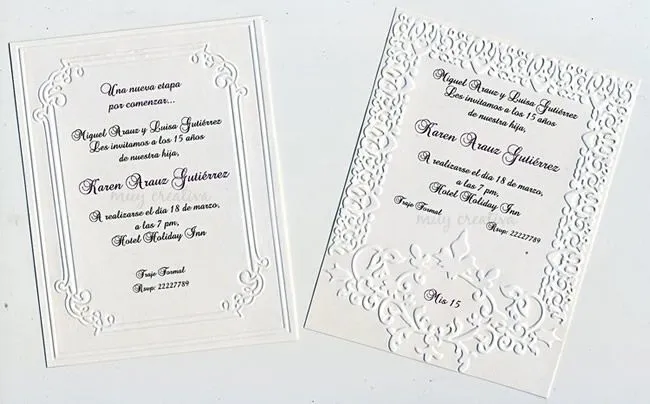 Una nueva etapa
por comenzar...
Miguel Arauz y Luisa Gutiérrez
Les invitamos a los 15 años
de nuestra hija,
Karen Arauz Gutiérrez
muy creativa
A realizarse el dia 18 de marzo,
a las 7 pm,
Hotel Holiday Inn
Traje Formal
Rsvp: 22227789
Miguel Arauz y Luisa Gutiérrez
Les invitamos a los 15 años
de nuestra hija,
Karen Arauz Gutiérrez
A realizarse el dia 18 de marzo,
a las 7 pm,
Hotel Holiday Inn
muy creativa
Traje Formal
Rsvp: 22227789
Mis 15